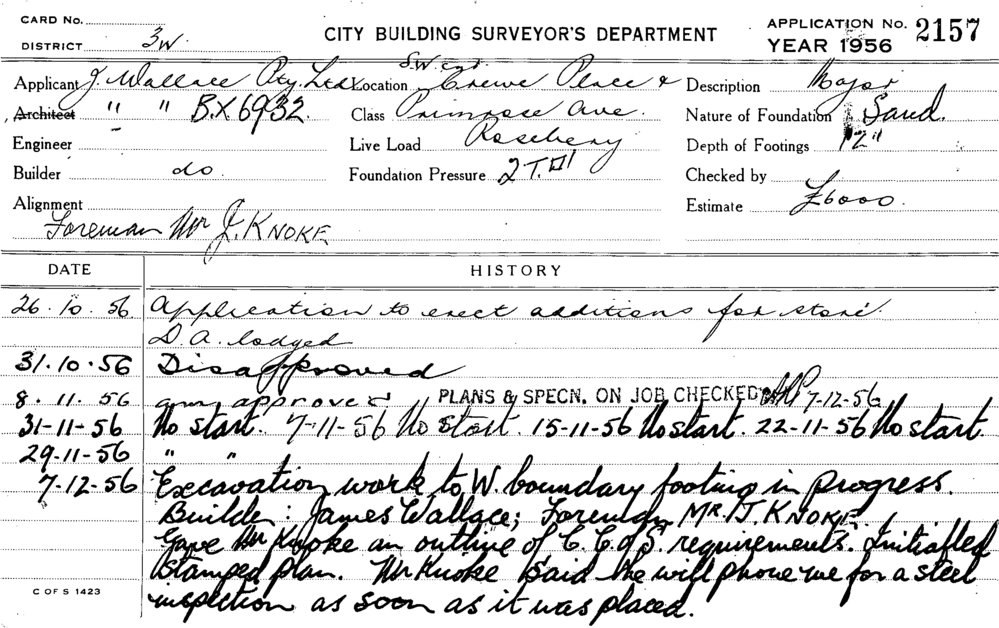 CARD NO.
DISTRICT 3W.
CITY BUILDING SURVEYOR'S DEPARTMENT
APPLICATION NO. 2157
YEAR 1956
Applicant J. Wallace Pty. Ltd. Location S.W. cnr. Crewe Place &
Description Major
Architect " " BX6932. Class Primrose Ave.
Nature of Foundation Sand.
Engineer - Live Load Rosebery
Depth of Footings 12"
Builder do Foundation Pressure 2 T.□'
Checked by
Alignment Estimate £6000.
Foreman Mr J. KNOKE
DATE HISTORY
26.10.56 Application to erect additions for store.
D.A. lodged
31.10.56 Disapproved
8.11.56 approved PLANS & SPECN. ON JOB CHECKED 7-12-56
31-11-56 No start. 7-11-56 No start. 15-11-56 No start. 22-11-56 No start.
29-11-56 " "
7-12-56 Excavation work to W. boundary footing in progress.
Builder: James Wallace; Foreman, MR. J. KNOKE
Gave Mr Knoke an outline of C.C. of S. requirements. Initialled
Stamped plan. Mr Knoke said he will phone me for a steel
inspection as soon as it was placed.
C OF S 1423